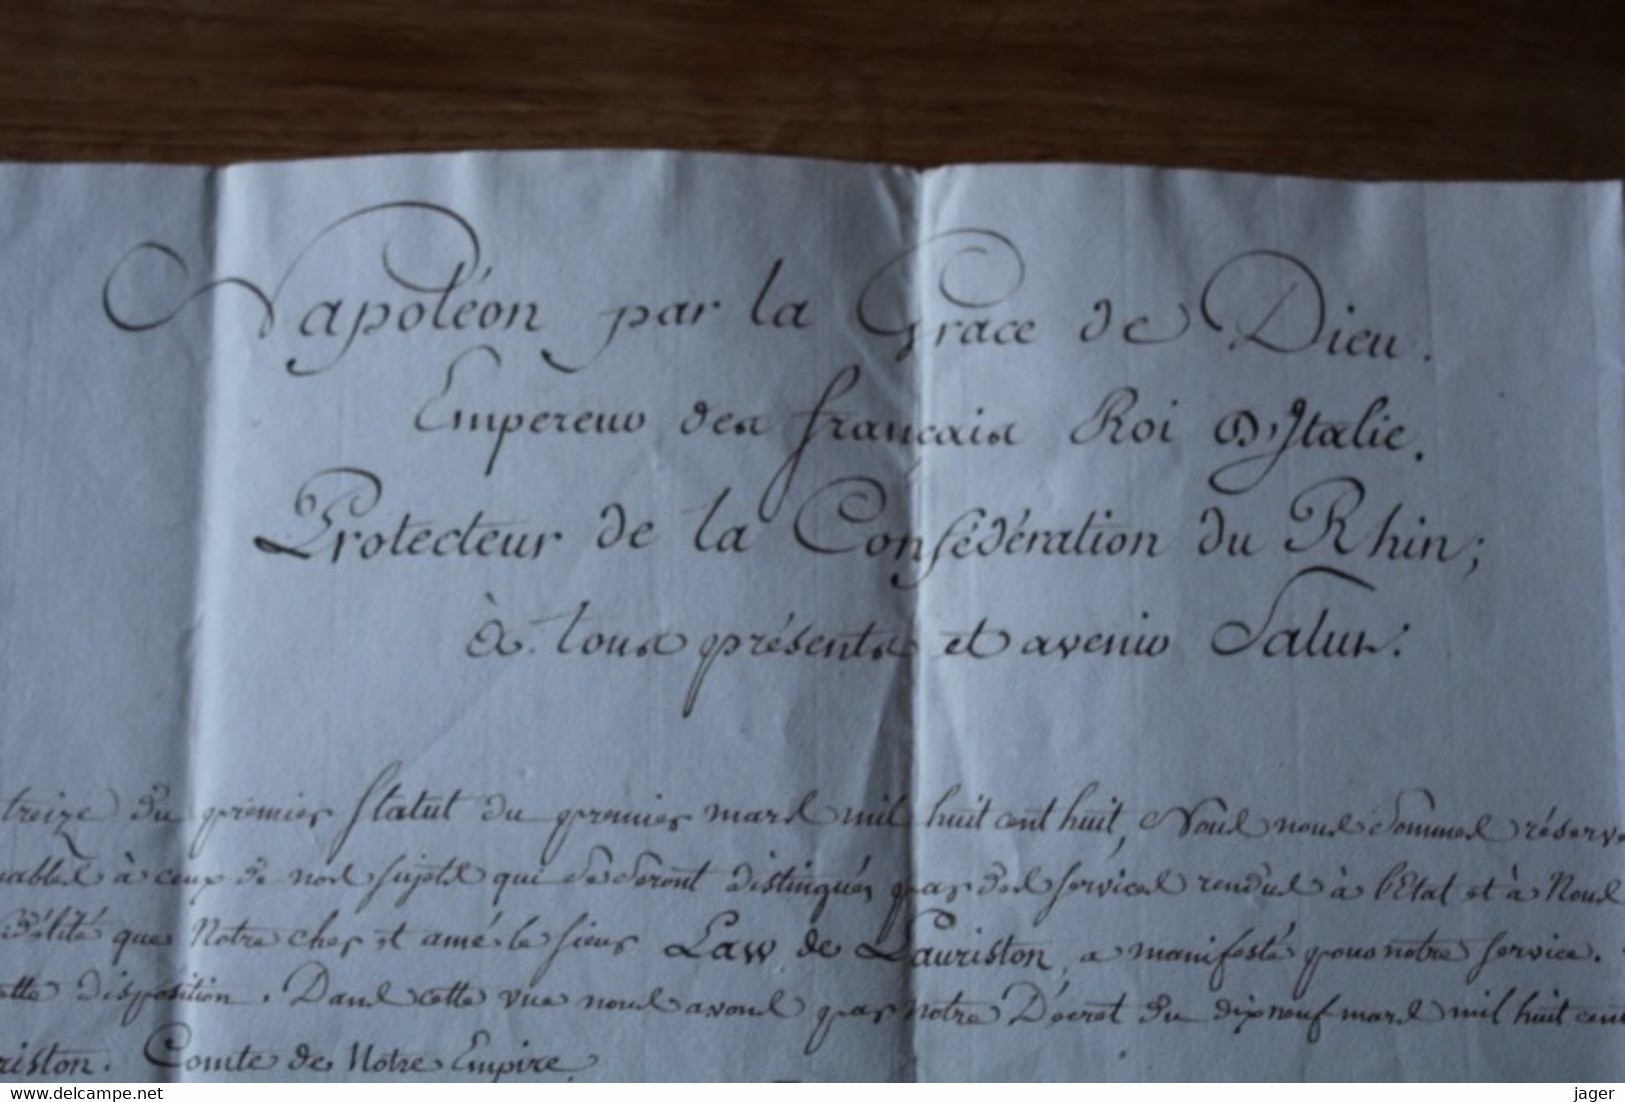 Napoléon par la Grace de Dieu.
Empereur des français Roi D'Italie.
Protecteur de la Confédération du Rhin;
à tous présents et avenir Salut.
treize du premier Statut du premier mars mil huit cent huit, Nous nous Sommes réservé
à ceux de nos sujets qui Se Seront distingués par des services rendus à l'Etat et à Nous
que Notre cher et amé le sieur Law de Lauriston, a manifesté pour notre service.
disposition. Dans cette vue nous avons par notre Décret du dix neuf mars mil huit cent
riston. Comte de Notre Empire.
delcampe.net
jager